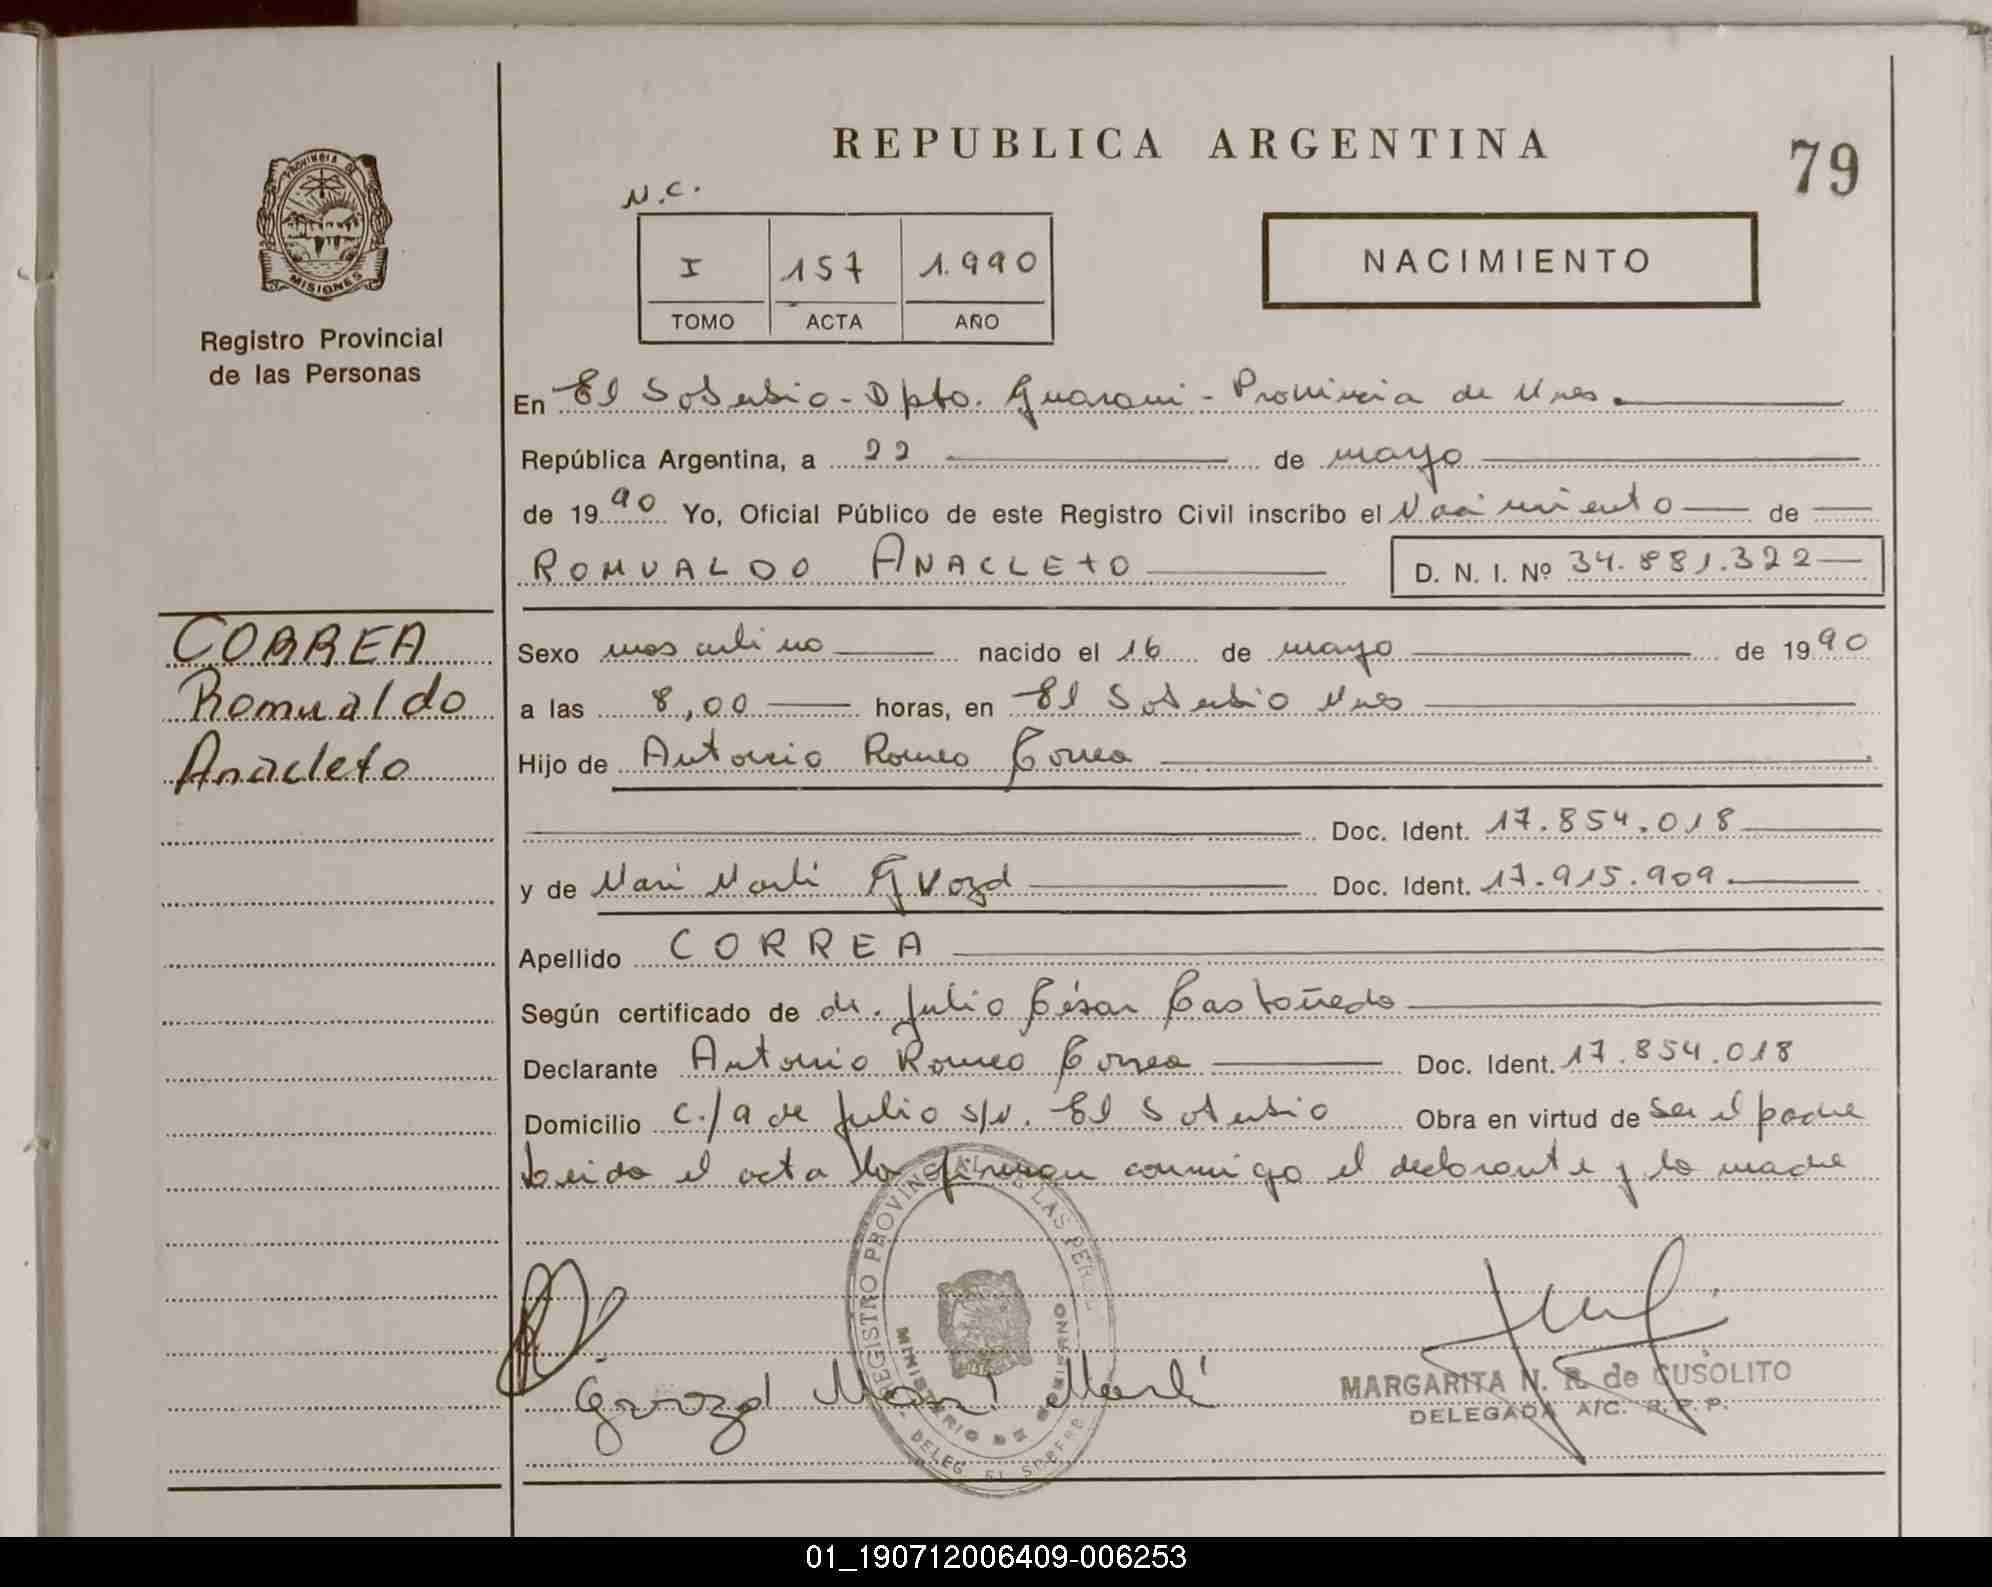 REPUBLICA ARGENTINA
79
N.C.
I 157 1.990
TOMO ACTA AÑO
NACIMIENTO
PROVINCIA DE
MISIONES
Registro Provincial
de las Personas
En El Soberbio - Dpto. Guarani - Provincia de Mnes.
República Argentina, a 22 de mayo
de 1990 Yo, Oficial Público de este Registro Civil inscribo el Nacimiento de
ROMUALDO ANACLETO D. N. I. Nº 34.881.322
CORREA
Romualdo
Anacleto
Sexo masculino nacido el 16 de mayo de 1990
a las 8,00 horas, en El Soberbio Mnes
Hijo de Antonio Romeo Correa
Doc. Ident. 17.854.018
y de Mari Marli Gvozd Doc. Ident. 17.915.909
Apellido CORREA
Según certificado de dr. Julio César Castañeda
Declarante Antonio Romeo Correa Doc. Ident. 17.854.018
Domicilio c./ 9 de Julio s/n. El Soberbio Obra en virtud de ser el padre
leida el acta la firman conmigo el declarante y la madre
REGISTRO PROVINCIAL DE LAS PER
MINISTERIO DE GOBIERNO
DELEG. EL SOBERB
Gvozd Mari Marli
MARGARITA N. R. de CUSOLITO
DELEGADA A/C. R.P.P.
01_190712006409-006253